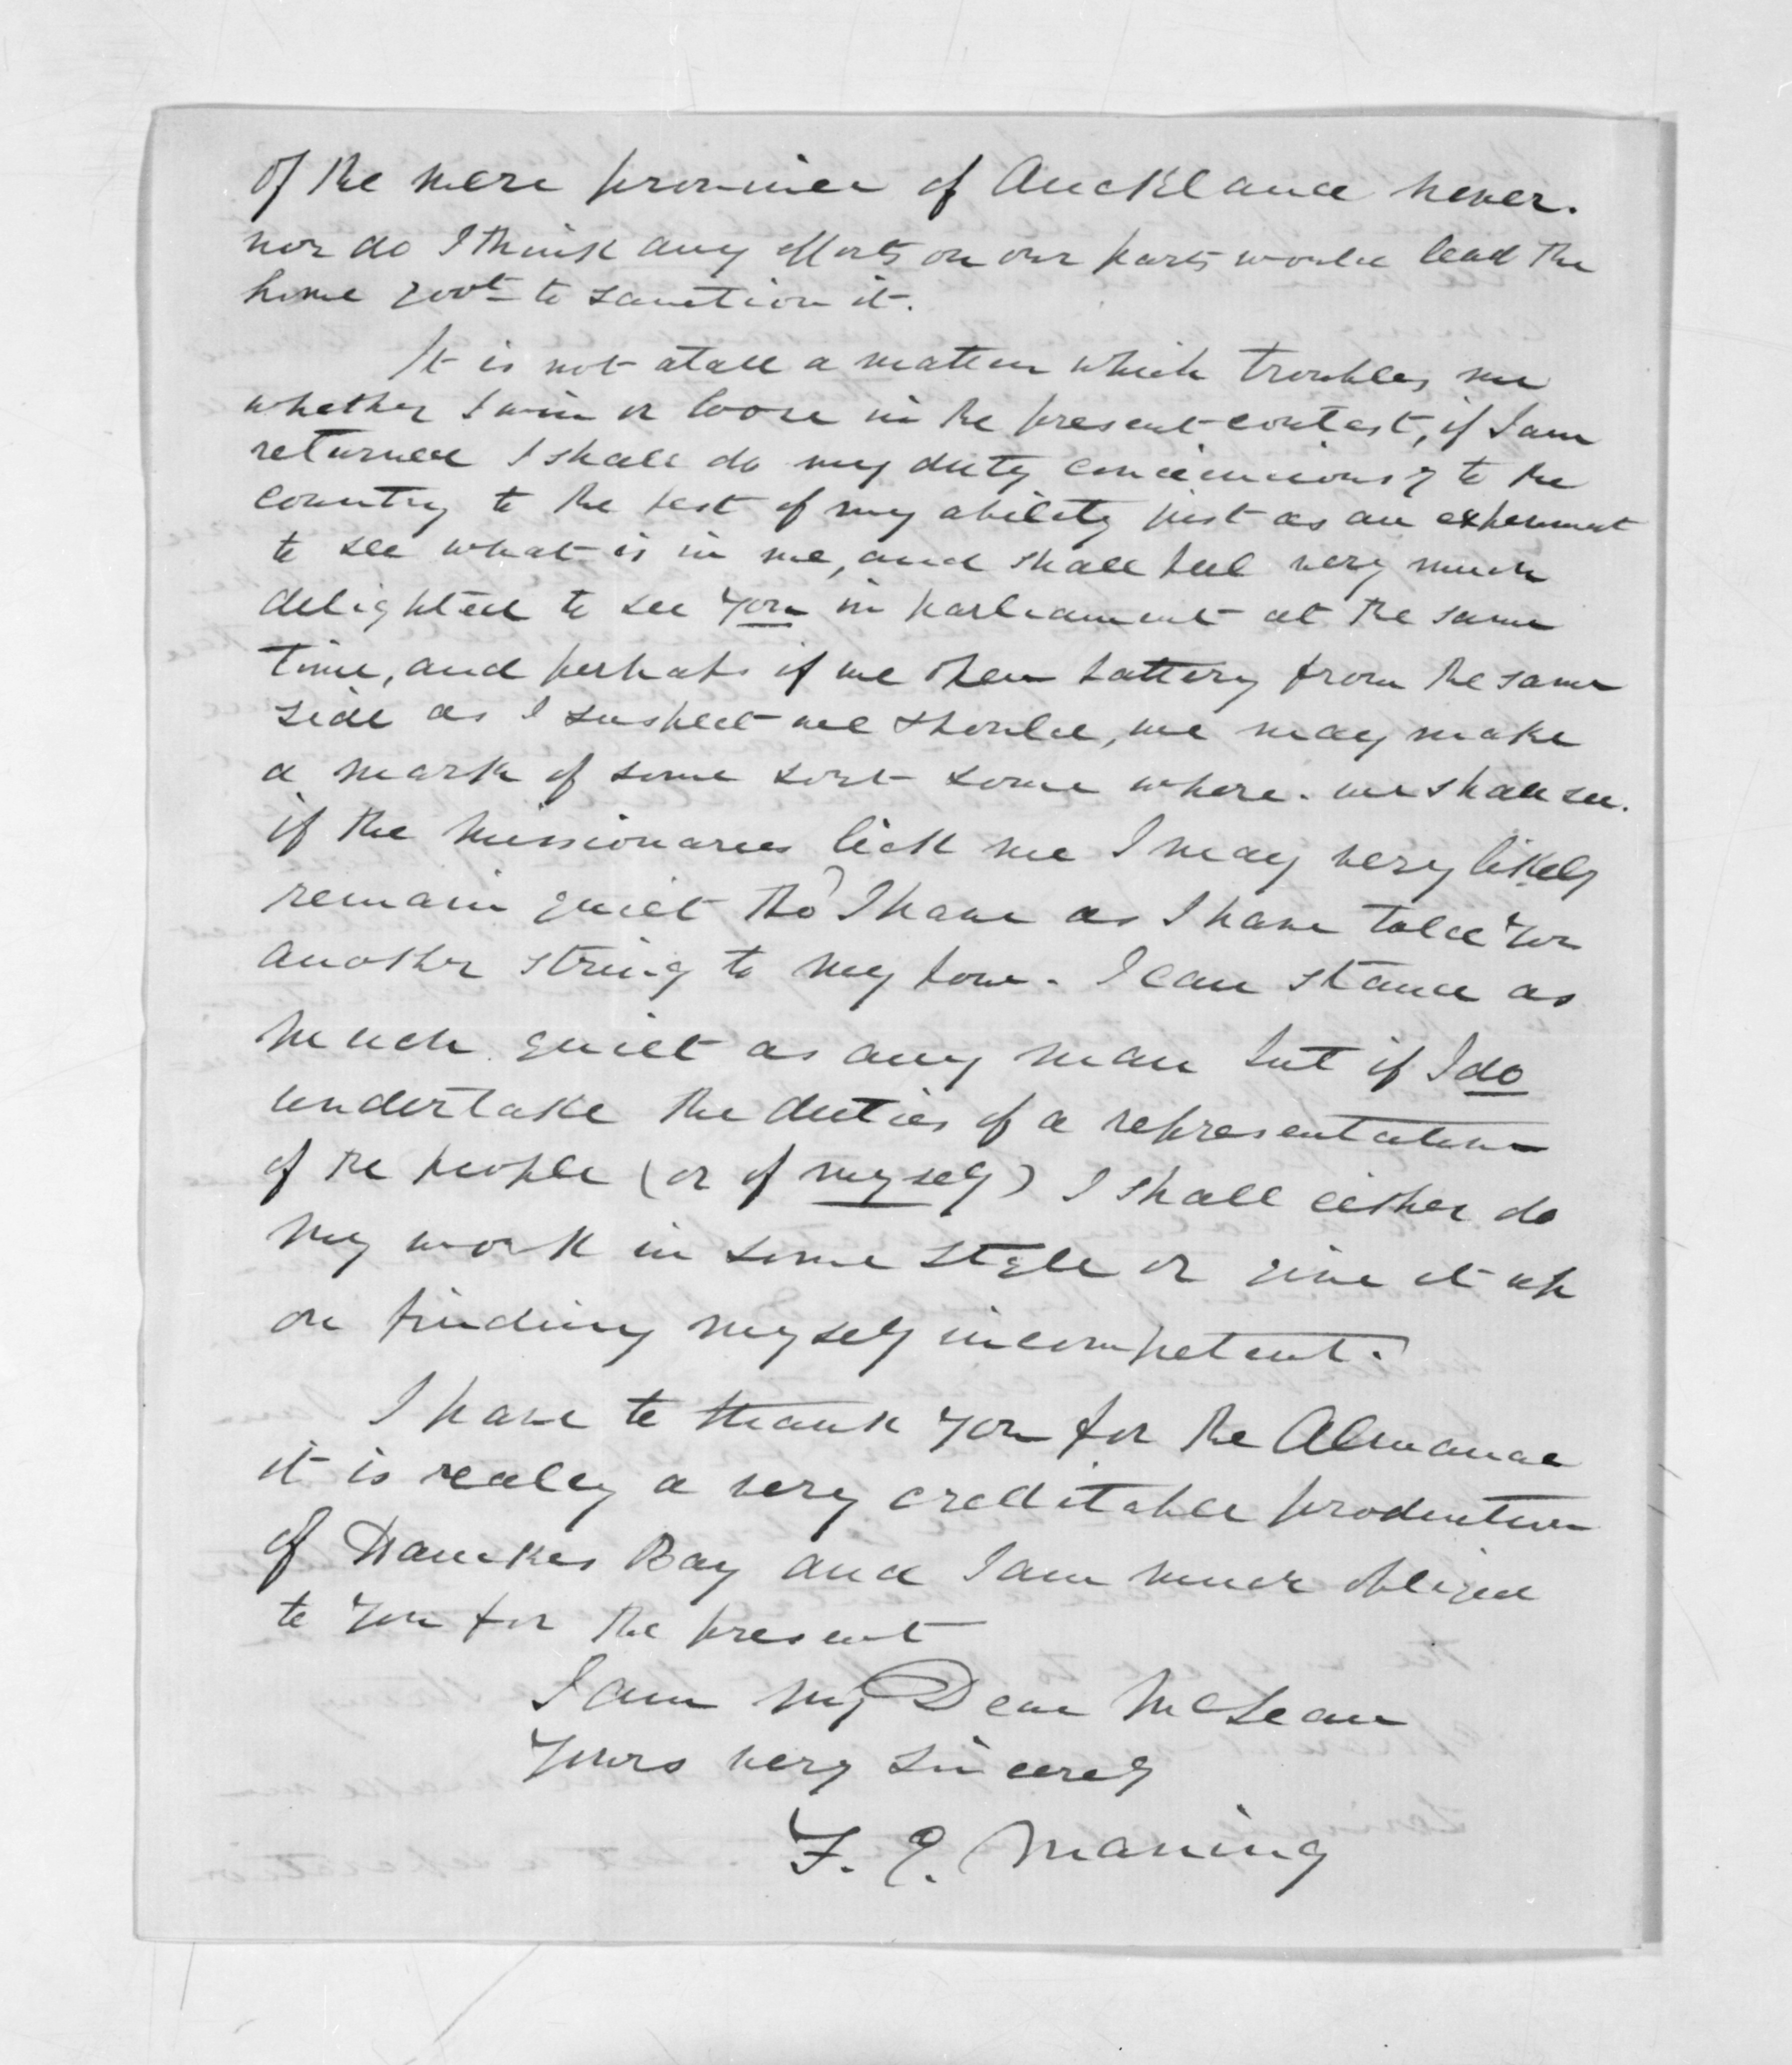 Of the mere province of Auckland never.
nor do I think any efforts on our parts would lead the
home govt to sanction it.
It is not atall a matter which troubles me
whether I win or loose in the present contest, if I am
returned I shall do my duty to the
country to the best of my ability just as an experiment
to see what is in me, and shall feel very much
delighted to see you in parliament at the same
time, and perhaps if we open battery from the same
side as I suspect we should, we may make
a mark of some sort some where. we shall see.
if the missionaries lick me I may very likely
remain quiet tho' I have as I have told you
another string to my bow. I can stand as
much quiet as any man but if I do
undertake the duties of a representative
of the people (or of myself) I shall either do
my work in some style or give it up
on finding myself incompetent.
I have to thank you for the Almanac
it is realy a very creditable production
of Hawkes Bay and I am much obliged
to you for the present
I am my Dear McLean
Yours very sincerely
F. E. Maning